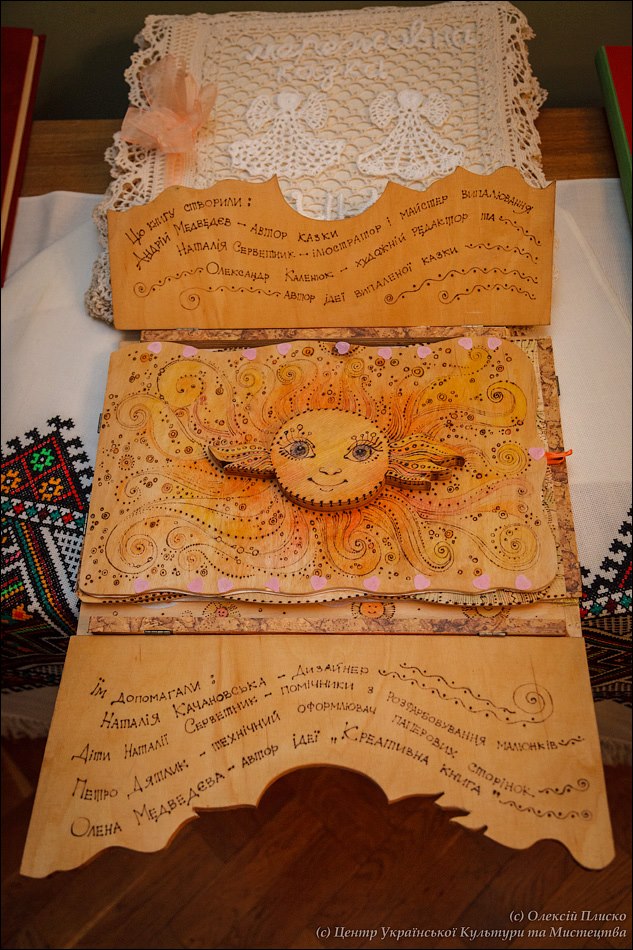 мережавна
казка
Цю книгу створили:
Андрій Медведєв – автор казки і майстер випалювання
Наталія Серветник – ілюстратор і художній редактор та
Олександр Каленюк –
автор ідеї випаленої казки
Їм допомагали:
Наталія Качановська – дизайнер
Діти Наталії Серветник – помічники з розфарбовування малюнків
Петро Дятлик – технічний оформлювач паперових сторінок
Олена Медведєва – автор ідеї „Креативна книга"
(c) Олексій Плиско
(c) Центр Української Культури та Мистецтва